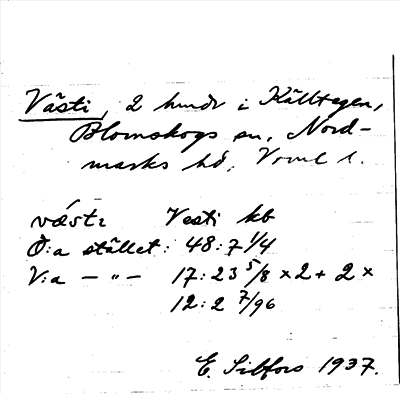 Västi, 2 hmdr i Källtegen,
Blomskogs sn, Nord-
marks hd, Vrml l.
vǽstɩ Vesti kb
Ö:a stället: 48:7 1/4
V:a — „ — 17:23 5/8 × 2 + 2 ×
12:2 7/96
E. Silfors 1937.